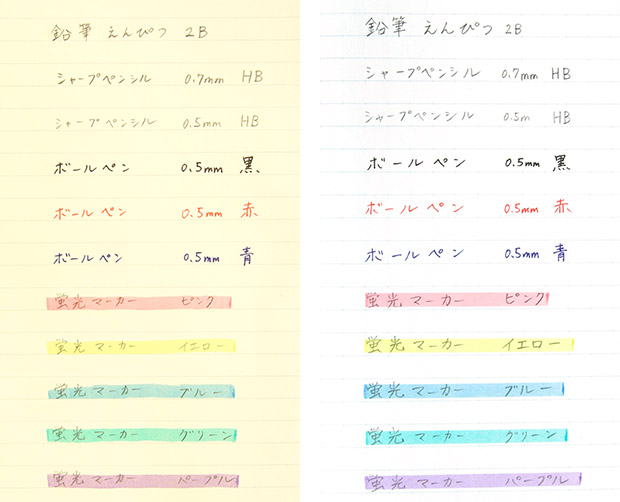 鉛筆 えんぴつ 2B
シャープペンシル 0.7mm HB
シャープペンシル 0.5mm HB
ボールペン 0.5mm 黒
ボールペン 0.5mm 赤
ボールペン 0.5mm 青
蛍光マーカー ピンク
蛍光マーカー イエロー
蛍光マーカー ブルー
蛍光マーカー グリーン
蛍光マーカー パープル
鉛筆 えんぴつ 2B
シャープペンシル 0.7mm HB
シャープペンシル 0.5m HB
ボールペン 0.5mm 黒
ボールペン 0.5mm 赤
ボールペン 0.5mm 青
蛍光マーカー ピンク
蛍光マーカー イエロー
蛍光マーカー ブルー
蛍光マーカー グリーン
蛍光マーカー パープル